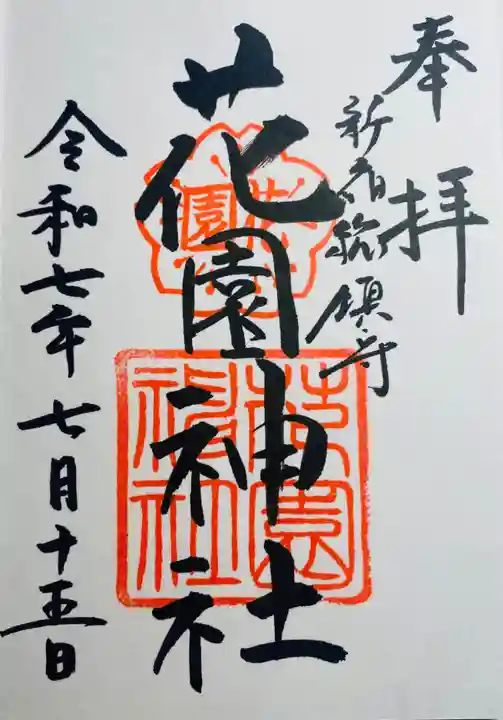 奉拝
新宿総鎮守
花園神社
花園
花園
神社
令和七年七月十五日